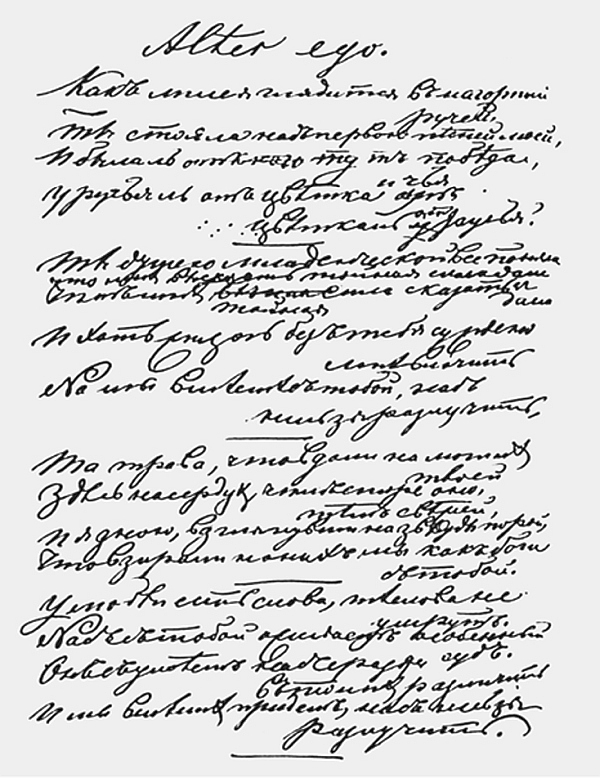 Alter ego.
Какъ лилея глядится въ нагорный
ручей,
Ты стояла надъ первою пѣсней моей,
И была ль побѣда,
и чья
У ручья ль отъ цвѣтка
цвѣткаль отъ ручья?
Ты душою младенческой все поняла
что мнѣ высказать тайная сила дала
сила сказать
дала
тайная
И хоть жизнь безъ тебя суждено
мнѣ влачить
Но мы вмѣстѣ съ тобой, насъ
нельзя разлучить,
Та трава, что вдали на могилѣ
твоей
Здѣсь на сердцѣ, чѣмъ старе оно,
тѣмъ свѣжей,
И я знаю, взглянувши на звѣзды порой,
Что взирали на нихъ мы какъ боги
съ тобой.
У любви есть слова, тѣ слова не
умрутъ.
Насъ съ тобой ожидаетъ особенный
судъ.
Онъ съумѣетъ насъ сразу
въ толпѣ различить
И мы вмѣстѣ придемъ, насъ нельзя
разлучить.